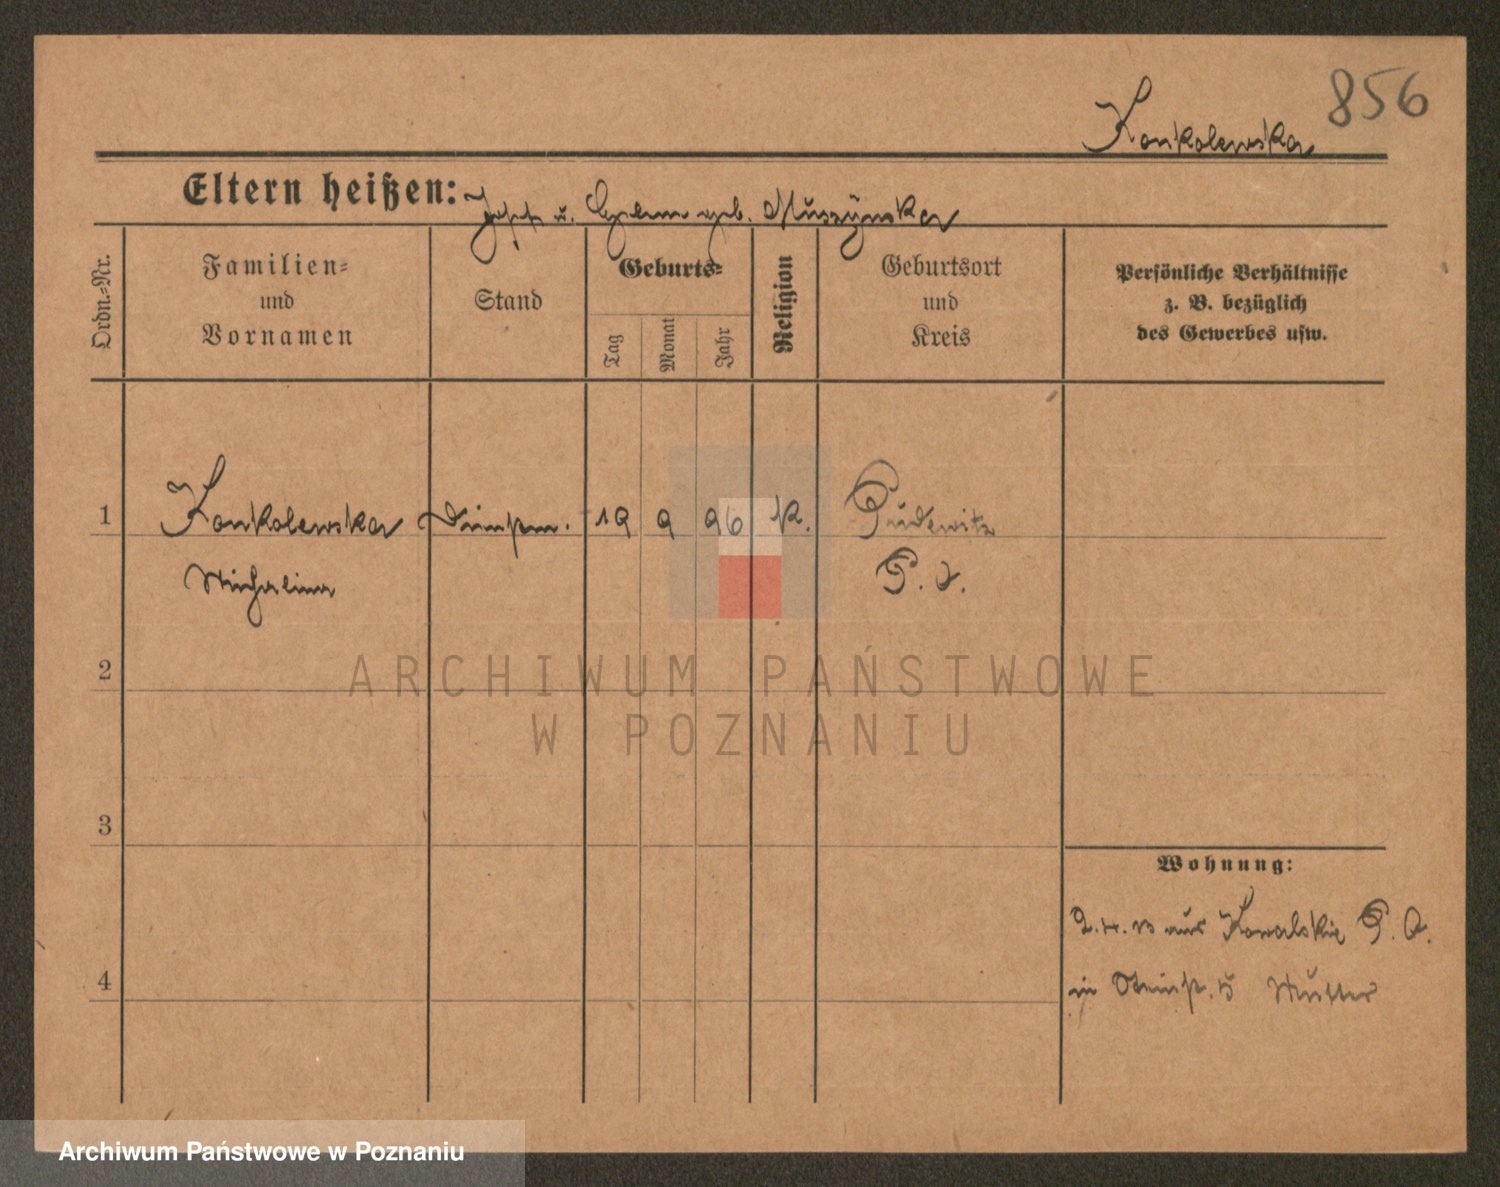 856
Konkolewska
Eltern heißen: Josef u. geb. Muszÿnska
Ordn.=Nr.
Familien=
und
Vornamen
Stand
Geburts=
Tag
Monat
Jahr
Religion
Geburtsort
und
Kreis
Persönliche Verhältnisse
z. B. bezüglich
des Gewerbes usw.
1 Konkolewska 19 9 96 K. Pudewitz
Michalina P. O.
2
3
4
Wohnung:
2.4.13 aus Kowalskie P. O.
in Steinstr. 5 Mutter
ARCHIWUM PAŃSTWOWE
W POZNANIU
Archiwum Państwowe w Poznaniu